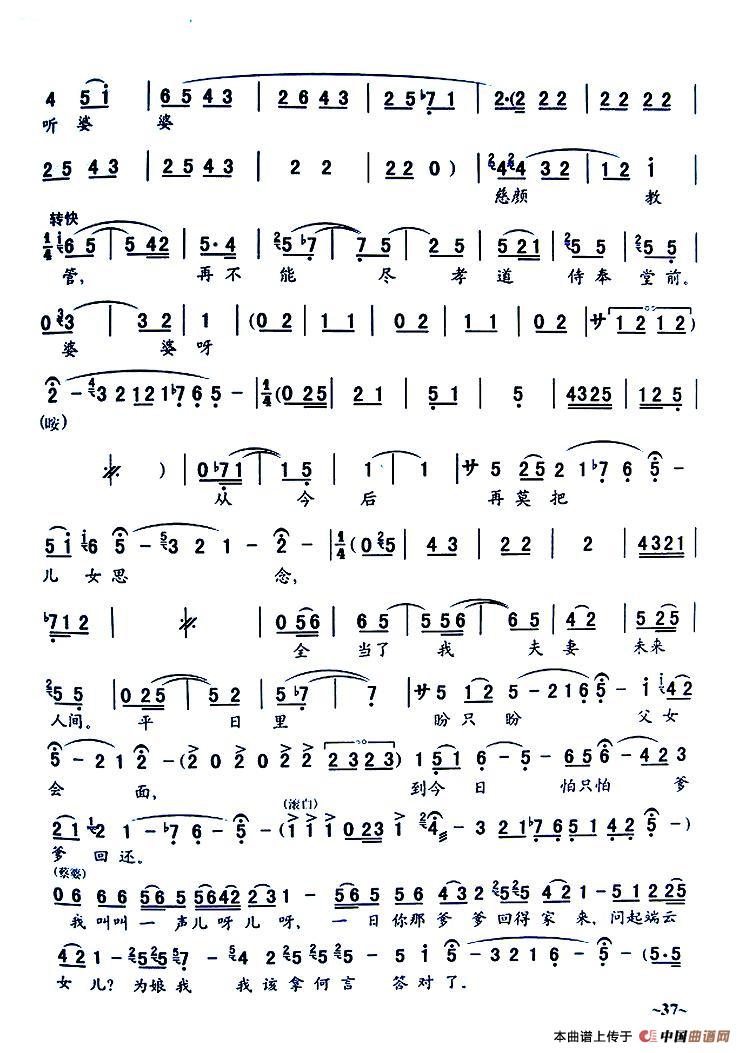 4 5 i | 6 5 4 3 | 2 6 4 3 | 2 5 ♭7 1 | 2·(2 2 2 | 2 2 2 2 |
听婆 婆
2 5 4 3 | 2 5 4 3 | 2 2 | 2 2 0 ) | 4 4 3 2 | 1 2 i |
慈颜 教
转快
1/4 6 5 | 5 4 2 | 5·4 | 5 ♭7 | 7 5 | 2 5 | 5 2 1 | 5 5 | 5 5 |
管, 再不 能 尽 孝 道 侍奉 堂前。
0 3 | 3 2 | 1 | (0 2 | 1 2 | 0 2 | 1 2 | 0 2 | 1 2 | サ 1 2 1 2 )
婆 婆 呀
2 - 3 2 1 2 1 ♭7 6 5 - | 1/4 (0 2 5 | 2 1 | 5 1 | 5 | 4 3 2 5 | 1 2 5 |
(唉)
) | 0 ♭7 1 | 1 5 | 1 | 1 | サ 5 2 5 2 1 ♭7 6 5 -
从 今 后 再莫 把
5 i 6 5 - 3 2 1 - 2 - | 1/4 (0 5 | 4 3 | 2 2 | 2 | 2 | 4 3 2 1 |
儿 女 思 念,
♭7 1 2 | | 0 5 6 | 6 5 | 5 5 6 | 6 5 | 4 2 | 5 2 5 |
全 当了 我 夫 妻 未来
5 5 | 0 2 5 | 5 2 | 5 ♭7 | 7 | サ 5 1 2 5 - 2 1 6 5 - i 4 2
人间。 平 日 里 盼 只 盼 父 女
5 - 2 1 2 - (0 2 0 2 0 2 2 2 3 2 3 ) 1 5 1 6 - 5 - 6 5 6 - 4 2 3
会 面, 到今 日 怕只怕 爹
(滚白)
2 1 2 1 - ♭7 6 - 5 - (1 1 1 0 2 3 1 2 - 3 2 1 ♭7 6 5 1 4 5 - )
爹 回 还。
(蔡婆)
0 6 6 6 5 6 5 5 6 4 2 2 3 1 - 5 6 5 5 6 4 3 2 5 5 4 2 1 - 5 1 2 2 5
我 叫叫 一 声儿 呀儿 呀, 一 日你那 爹 爹回得 家 来, 问起端云
4 2 1 - 5 5 7 - 4 2 5 5 - 5 i 5 - 3 2 1 6 - 5 - (5·5
女 儿? 为娘我 我 该 拿 何 言 答 对 了。
~37~
本曲谱上传于 中国曲谱网